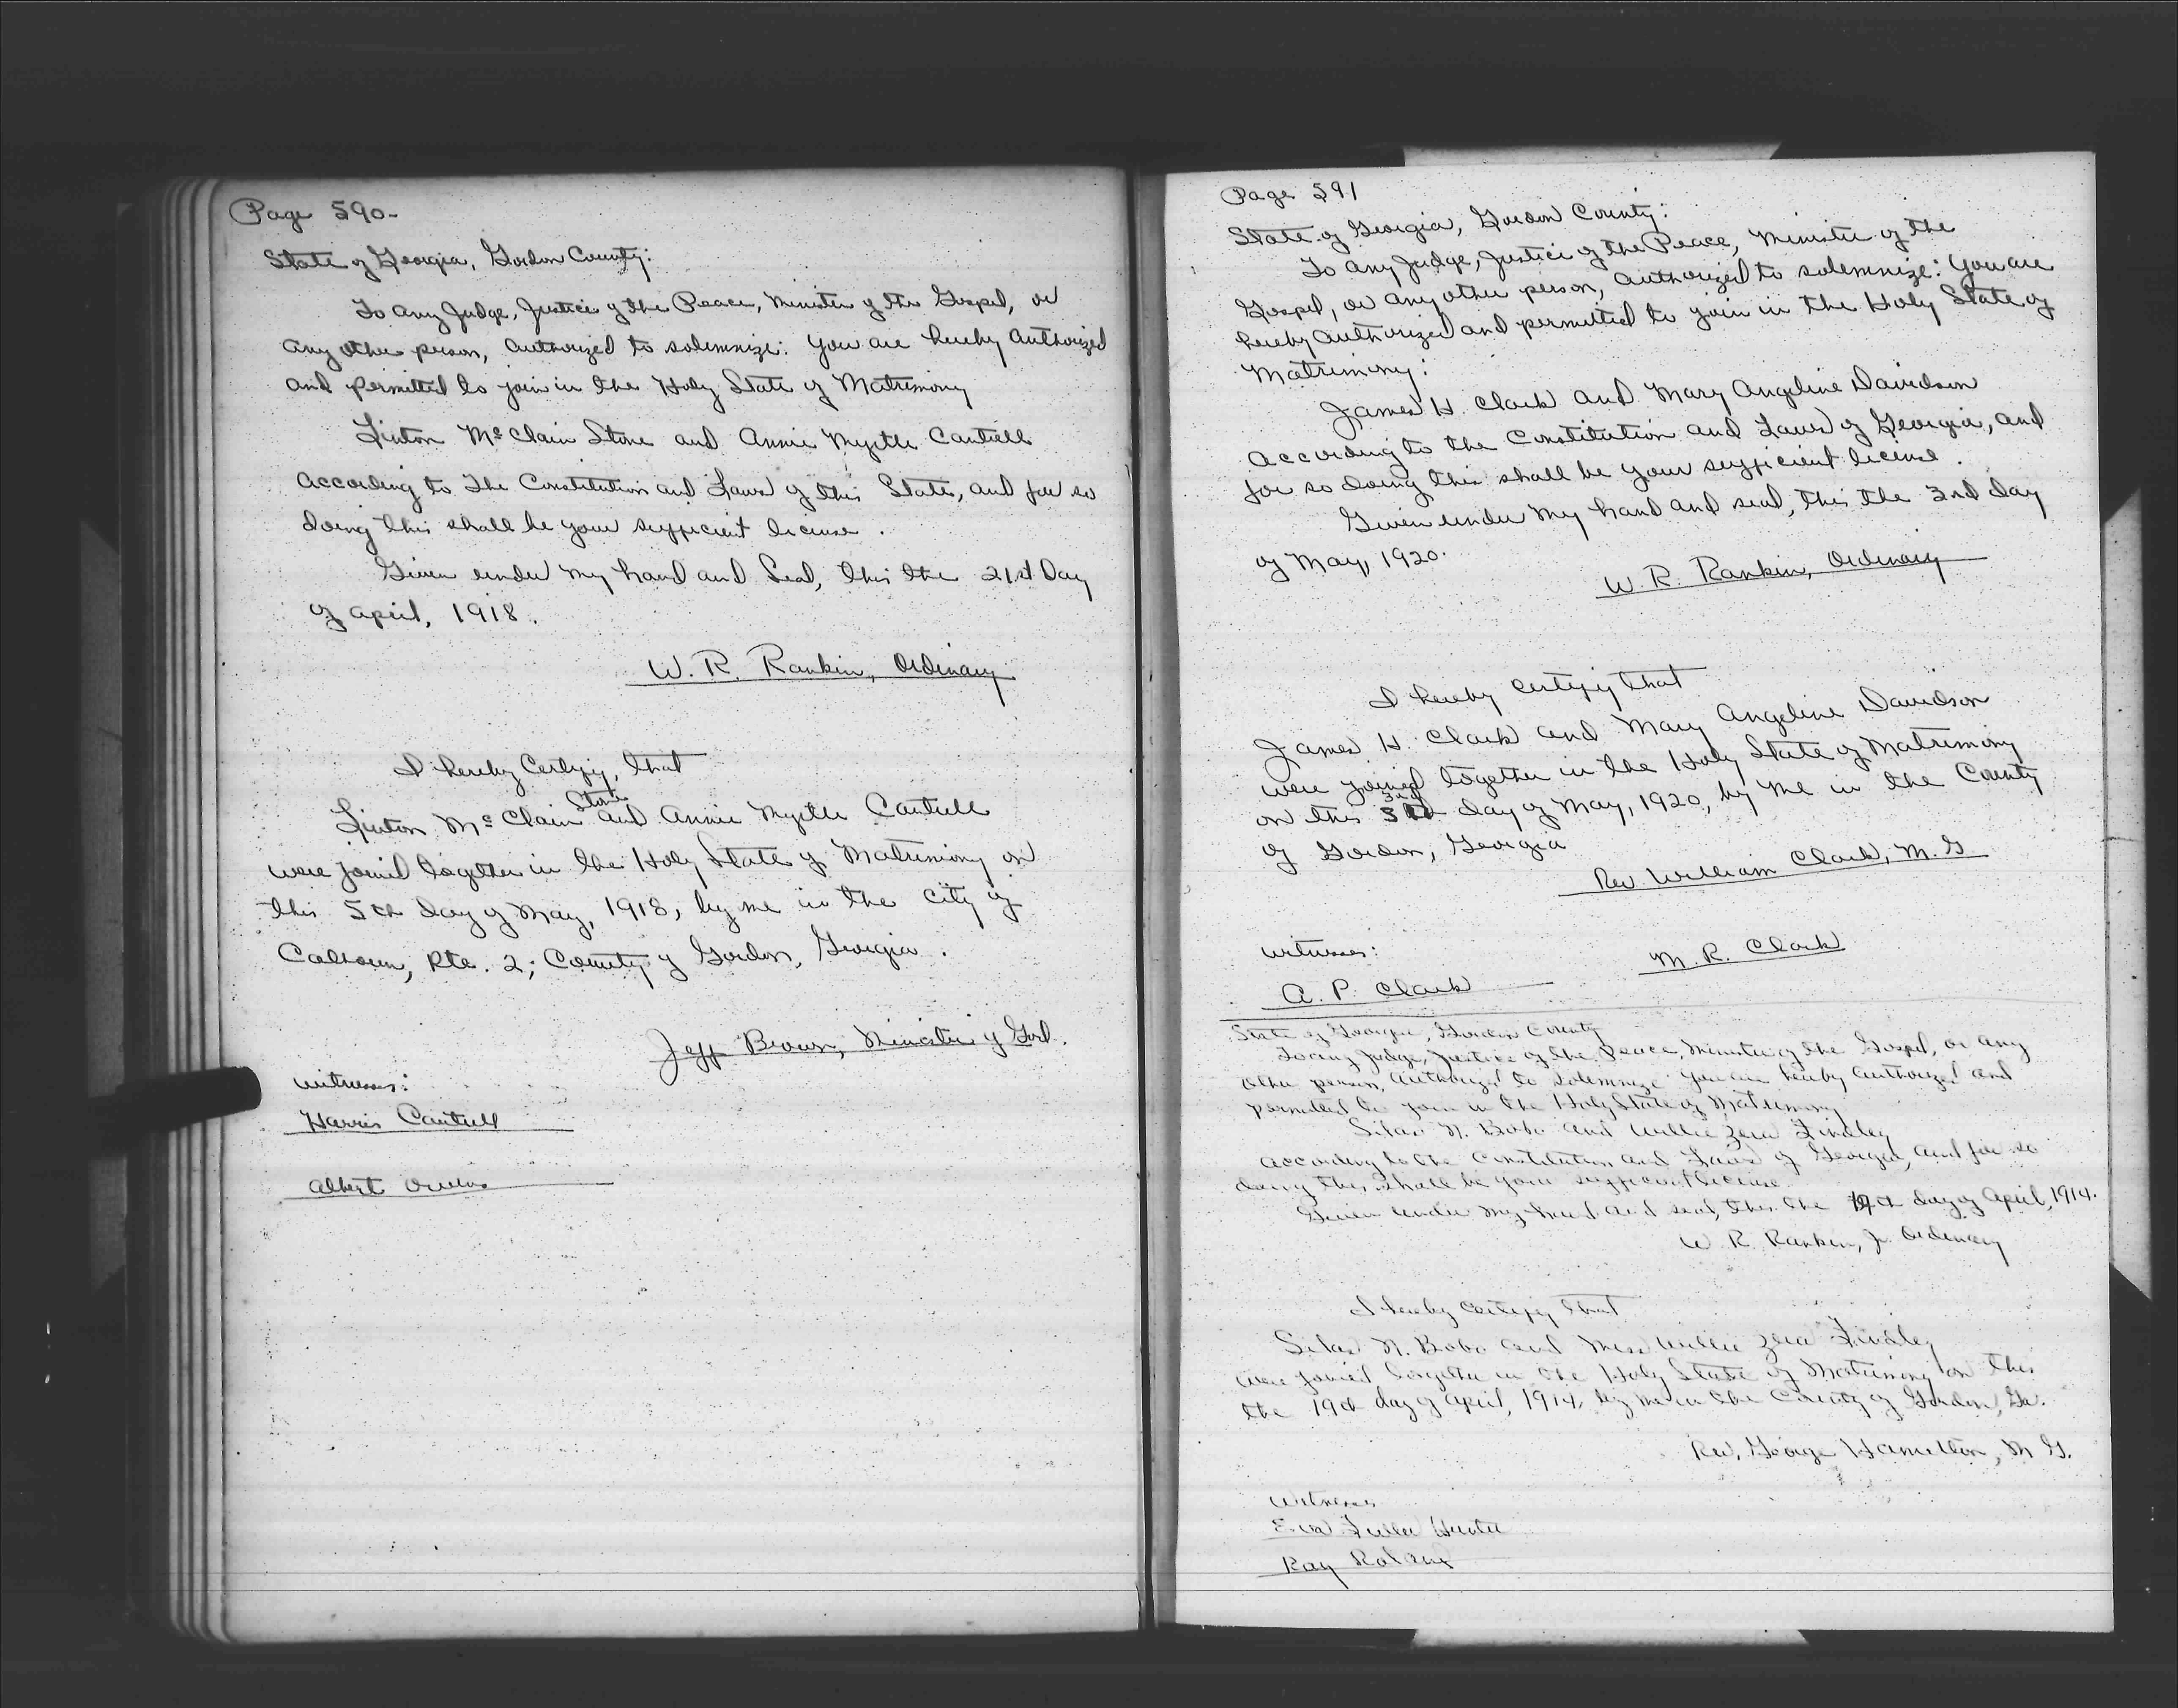 Page 590-
State of Georgia, Gordon County:
To any Judge, Justice of the Peace, Minister of the Gospel, or
any other person, authorized to solemnize: You are hereby authorized
and permitted to join in the Holy State of Matrimony
Linton McClain Stone and Annie Myrtle Cantrell
According to The Constitution and Laws of this State, and for so
doing this shall be your sufficient license.
Given under my hand and Seal, this the 21st Day
of April, 1918.
W. R. Rankin, Ordinary
I hereby Certify, that
Stone
Linton McClain and Annie Myrtle Cantrell
were joined together in the Holy State of Matrimony on
this 5th day of May, 1918, by me in the City of
Calhoun, Rte. 2; County of Gordon, Georgia.
Jeff Brown, Minister of God.
Witnesses:
Harris Cantrell
Albert Owens
Page 591
State of Georgia, Gordon County:
To any Judge, Justice of the Peace, Minister of the
Gospel, or any other person, authorized to solemnize: You are
hereby authorized and permitted to join in the Holy State of
Matrimony:
James H. Clark and Mary Angeline Davidson
According to the Constitution and Laws of Georgia, and
for so doing this shall be your sufficient license.
Given under my hand and seal, this the 3rd day
of May, 1920.
W. R. Rankin, Ordinary
I hereby certify that
James H. Clark and Mary Angeline Davidson
were joined together in the Holy State of Matrimony
3rd
on this day of May, 1920, by me in the County
of Gordon, Georgia
Rev. William Clark, M. G.
Witnesses:
M. R. Clark
A. P. Clark
State of Georgia, Gordon County
To any Judge, Justice of the Peace, Minister of the Gospel, or any
other person, authorized to solemnize You are hereby authorized and
permitted to join in the Holy State of Matrimony
Silas N. Bobo and Willie Zera Findley
According to the Constitution and Laws of Georgia, and for so
doing this shall be your sufficient license.
Given under my hand and seal, this the 19th day of April, 1914.
W. R. Rankin, Jr. Ordinary
I hereby certify that
Silas N. Bobo and Miss Willie Zera Findley
were joined together in the Holy State of Matrimony on this
the 19th day of April, 1914, by me in the County of Gordon, Ga.
Rev. George Hamilton, M. G.
Witnesses
Fuller Hunter
Ray